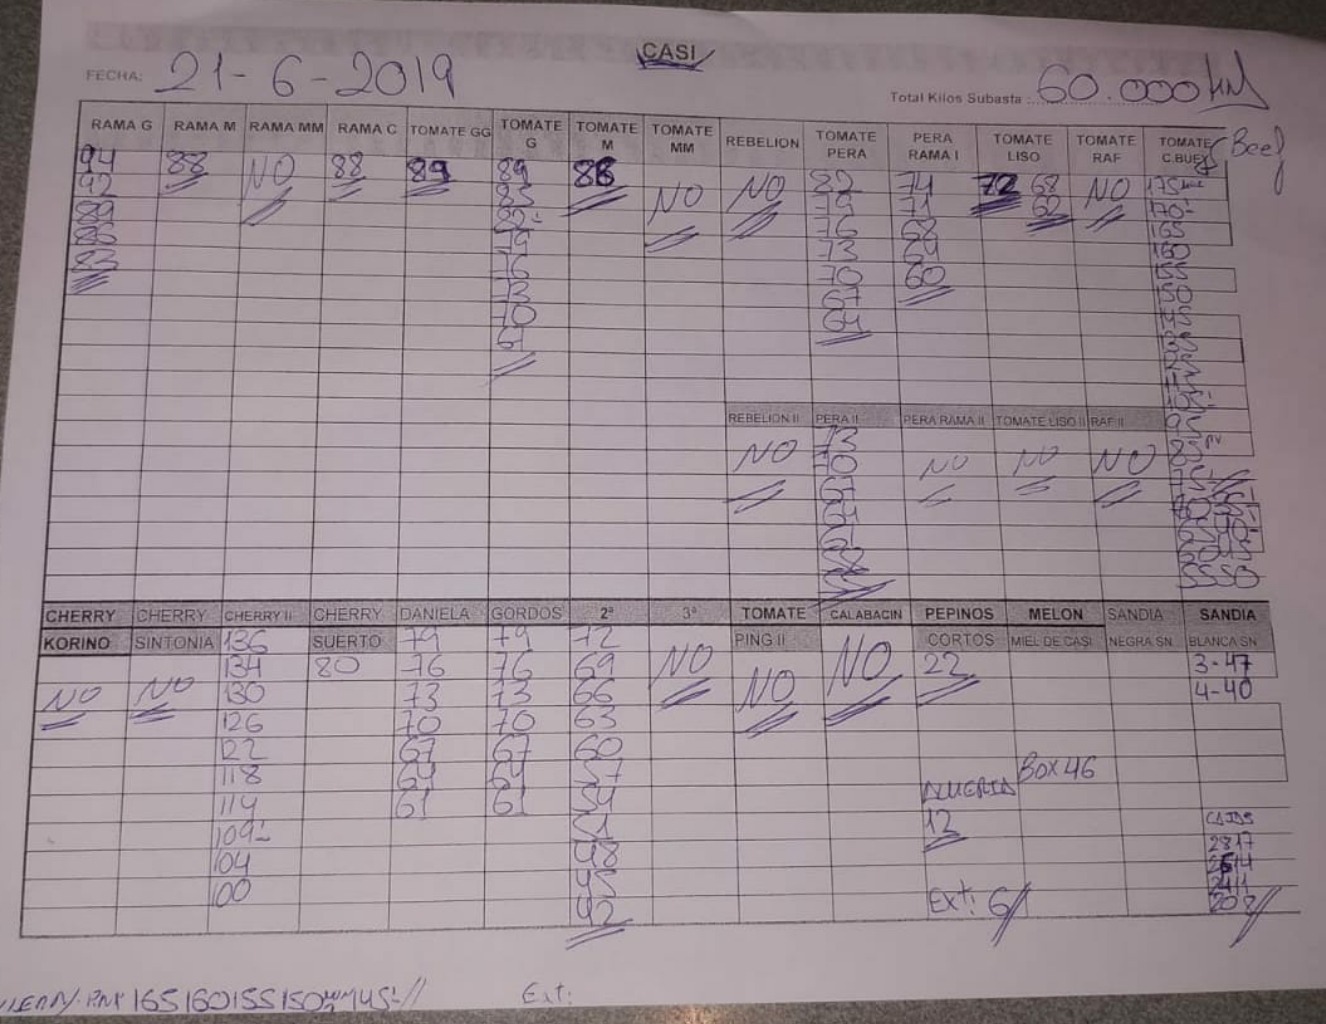 CASI
FECHA: 21-6-2019
Total Kilos Subasta: 60.000
RAMA G RAMA M RAMA MM RAMA C TOMATE GG TOMATE G TOMATE M TOMATE MM REBELION TOMATE PERA PERA RAMA I TOMATE LISO TOMATE RAF TOMATE C.BUEY Beef
94 88 NO 88 89 89 86 NO NO 82 74 72 68 NO 175
92 85 79 71 62 170
89 82 76 68 165
86 79 73 64 160
83 76 70 60 155
73 67 150
70 64 145
67
REBELION II PERA II PERA RAMA II TOMATE LISO II RAF II 95
NO 73 NO NO NO 85
70 75
67
64
61
58
55 5550
CHERRY CHERRY CHERRY II CHERRY DANIELA GORDOS 2ª 3ª TOMATE CALABACIN PEPINOS MELON SANDIA SANDIA
KORINO SINTONIA 136 SUERTO 79 79 72 PING II CORTOS MIEL DE CASI NEGRA SN BLANCA SN
NO NO 134 80 76 76 69 NO NO NO 22 3-47
130 73 73 66 4-40
126 70 70 63
122 67 67 60
118 64 64 57 ALMERIA BOX 46
114 61 61 54 12 CAJAS
109 51 2817
104 48 2614
100 45 2411
42 Ext: 6 208
165 160 155 150 145
Ext: